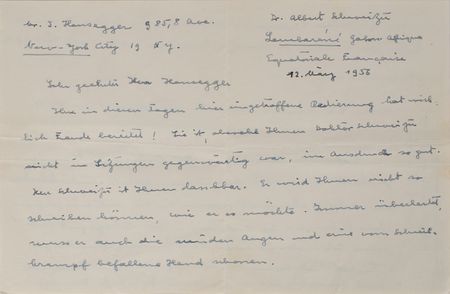 Mr. I. Hansegger 985, 8 Ave.
New-York City 19 N.Y.
Dr. Albert Schweitzer
Lambaréné Gabon Afrique
Equatoriale Française
12. März 1956
Sehr geehrter Herr Hansegger
Ihre in diesen Tagen hier eingetroffene Radierung hat wirk-
lich Freude bereitet! Sie ist, obwohl Ihnen Doktor Schweitzer
nicht in Sitzungen gegenwärtig war, im Ausdruck so gut.
Herr Schweitzer ist Ihnen dankbar. Er wird Ihnen nicht so
schreiben können, wie er es möchte. Immer überlastet,
muss er auch die müden Augen und eine vom Schreib-
krampf befallene Hand schonen.